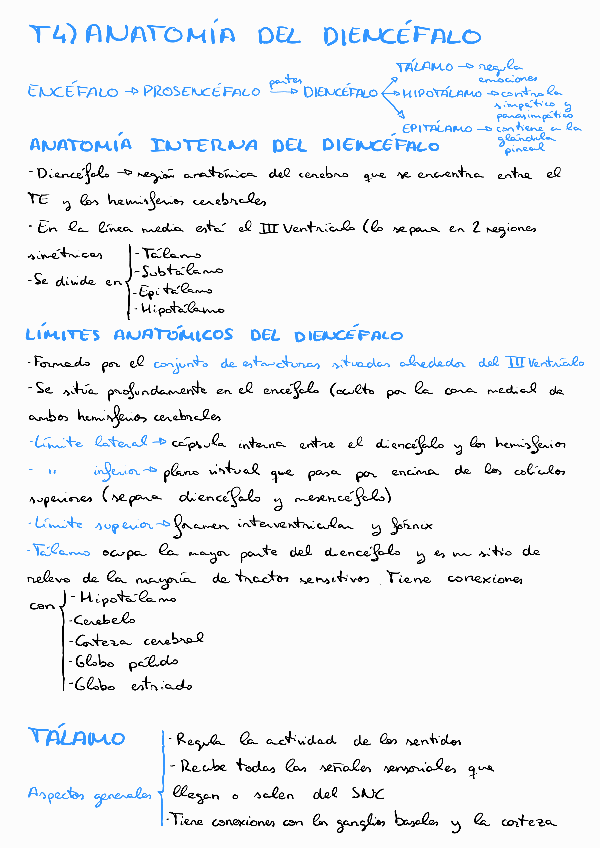 T4) ANATOMÍA DEL DIENCÉFALO
ENCÉFALO → PROSENCÉFALO partes → DIENCÉFALO
TÁLAMO → regula
emociones
HIPOTÁLAMO → controla
simpático y
parasimpático
EPITÁLAMO → contiene a la
glándula
pineal
ANATOMÍA INTERNA DEL DIENCÉFALO
-Diencéfalo → región anatómica del cerebro que se encuentra entre el
TE y los hemisferios cerebrales
-En la línea media está el III Ventrículo (lo separa en 2 regiones
simétricas
-Se divide en
-Tálamo
-Subtálamo
-Epitálamo
-Hipotálamo
LÍMITES ANATÓMICOS DEL DIENCÉFALO
-Formado por el conjunto de estructuras situadas alrededor del III Ventrículo
-Se sitúa profundamente en el encéfalo (oculto por la cara medial de
ambos hemisferios cerebrales
-Límite lateral → cápsula interna entre el diencéfalo y los hemisferios
- " inferior → plano virtual que pasa por encima de los colículos
superiores (separa diencéfalo y mesencéfalo)
-Límite superior → foramen interventricular y fórnix
-Tálamo ocupa la mayor parte del diencéfalo y es un sitio de
relevo de la mayoría de tractos sensitivos. Tiene conexiones
con
-Hipotálamo
-Cerebelo
-Corteza cerebral
-Globo pálido
-Globo estriado
TÁLAMO
Aspectos generales
-Regula la actividad de los sentidos
-Recibe todas las señales sensoriales que
llegan o salen del SNC
-Tiene conexiones con los ganglios basales y la corteza